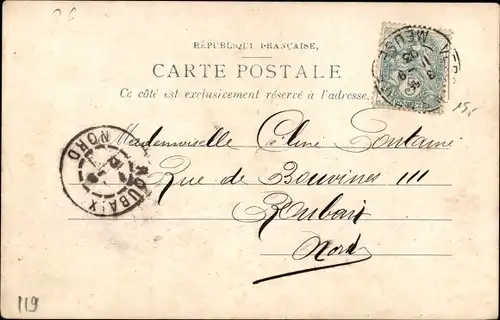 RÉPUBLIQUE FRANÇAISE.
CARTE POSTALE
Ce côté est exclusivement réservé à l'adresse.
MEUSE
Mademoiselle Céline Fontaine
Rue de Bouvines 111
Roubaix
Nord
ROUBAIX
NORD
119